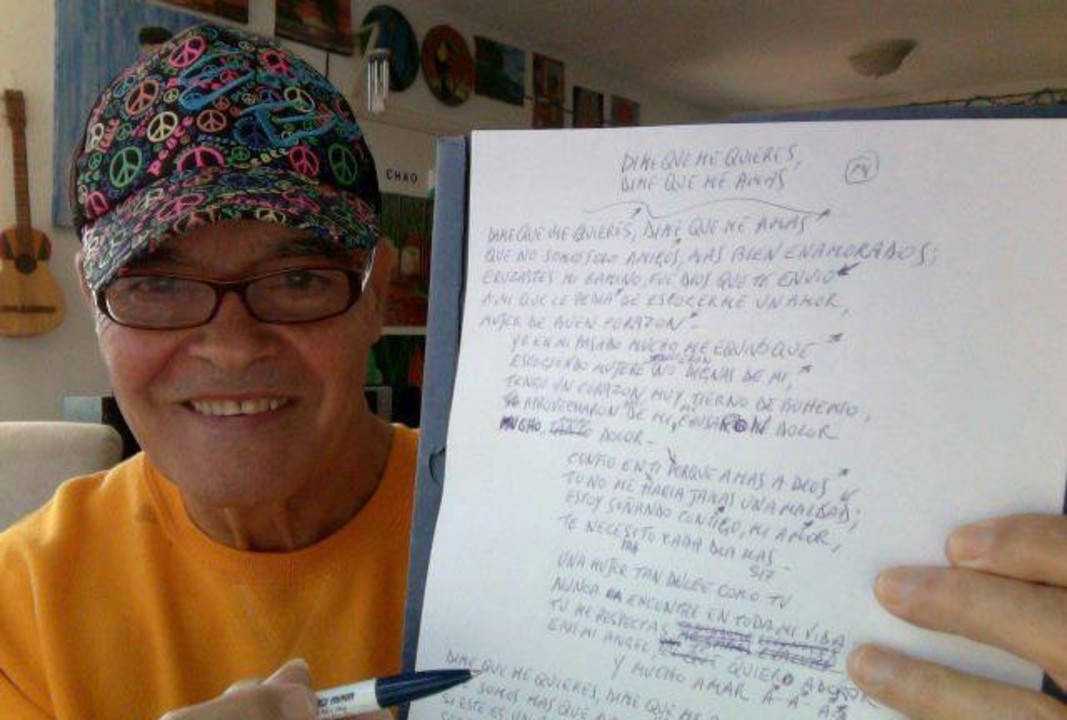 peace
CHAO
DIME QUE ME QUIERES,
DIME QUE ME AMAS
DIME QUE ME QUIERES, DIME QUE ME AMAS
QUE NO SOMOS SOLO AMIGOS, MAS BIEN ENAMORADOS;
CRUZASTES MI CAMINO, FUE DIOS QUE TE ENVIO
A MI QUE LE PEDIA DE ESCOGERME UN AMOR,
MUJER DE BUEN CORAZON -
YO EN MI PASADO MUCHO ME EQUIVOQUE
ESCOGIENDO MUJERES NO DIGNAS DE MI,
TENGO UN CORAZON MUY TIERNO DE BOHEMIO,
SE APROVECHARON DE MI, CAUSARON DOLOR
MUCHO, DOLOR -
CONFIO EN TI PORQUE AMAS A DIOS
TU NO ME HARIA JAMAS UNA MALDAD;
ESTOY SOÑANDO CONTIGO, MI AMOR,
TE NECESITO CADA DIA MAS -
UNA MUJER TAN DULCE COMO TU
NUNCA ENCONTRE EN TODA MI VIDA
TU ME RESPECTAS
ERES MI ANGEL, TE QUIERO ADORAR
Y MUCHO AMAR A - A - A
DIME QUE ME QUIERES, DIME QUE ME
SOMOS MAS QUE
SI ESTE ES UN